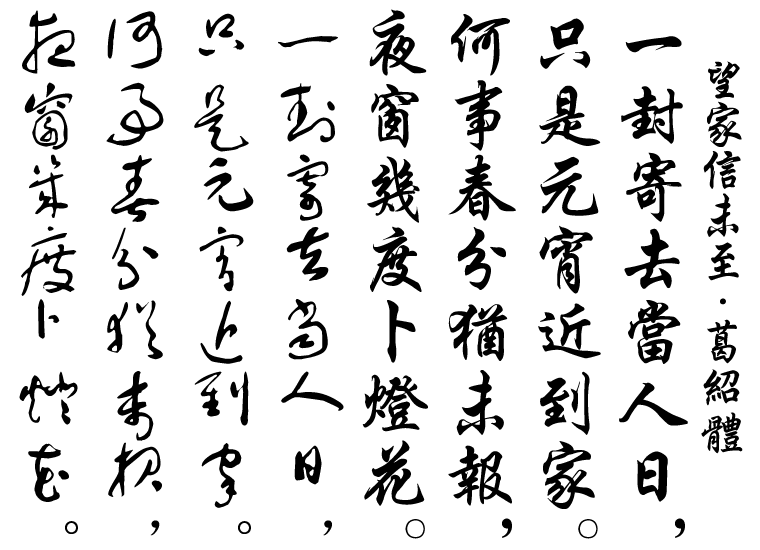 望家信未至・葛紹體
一封寄去當人日，
只是元宵近到家。
何事春分猶未報，
夜窗幾度卜燈花。
一封寄去當人日，
只是元宵近到家。
何事春分猶未報，
夜窗幾度卜燈花。